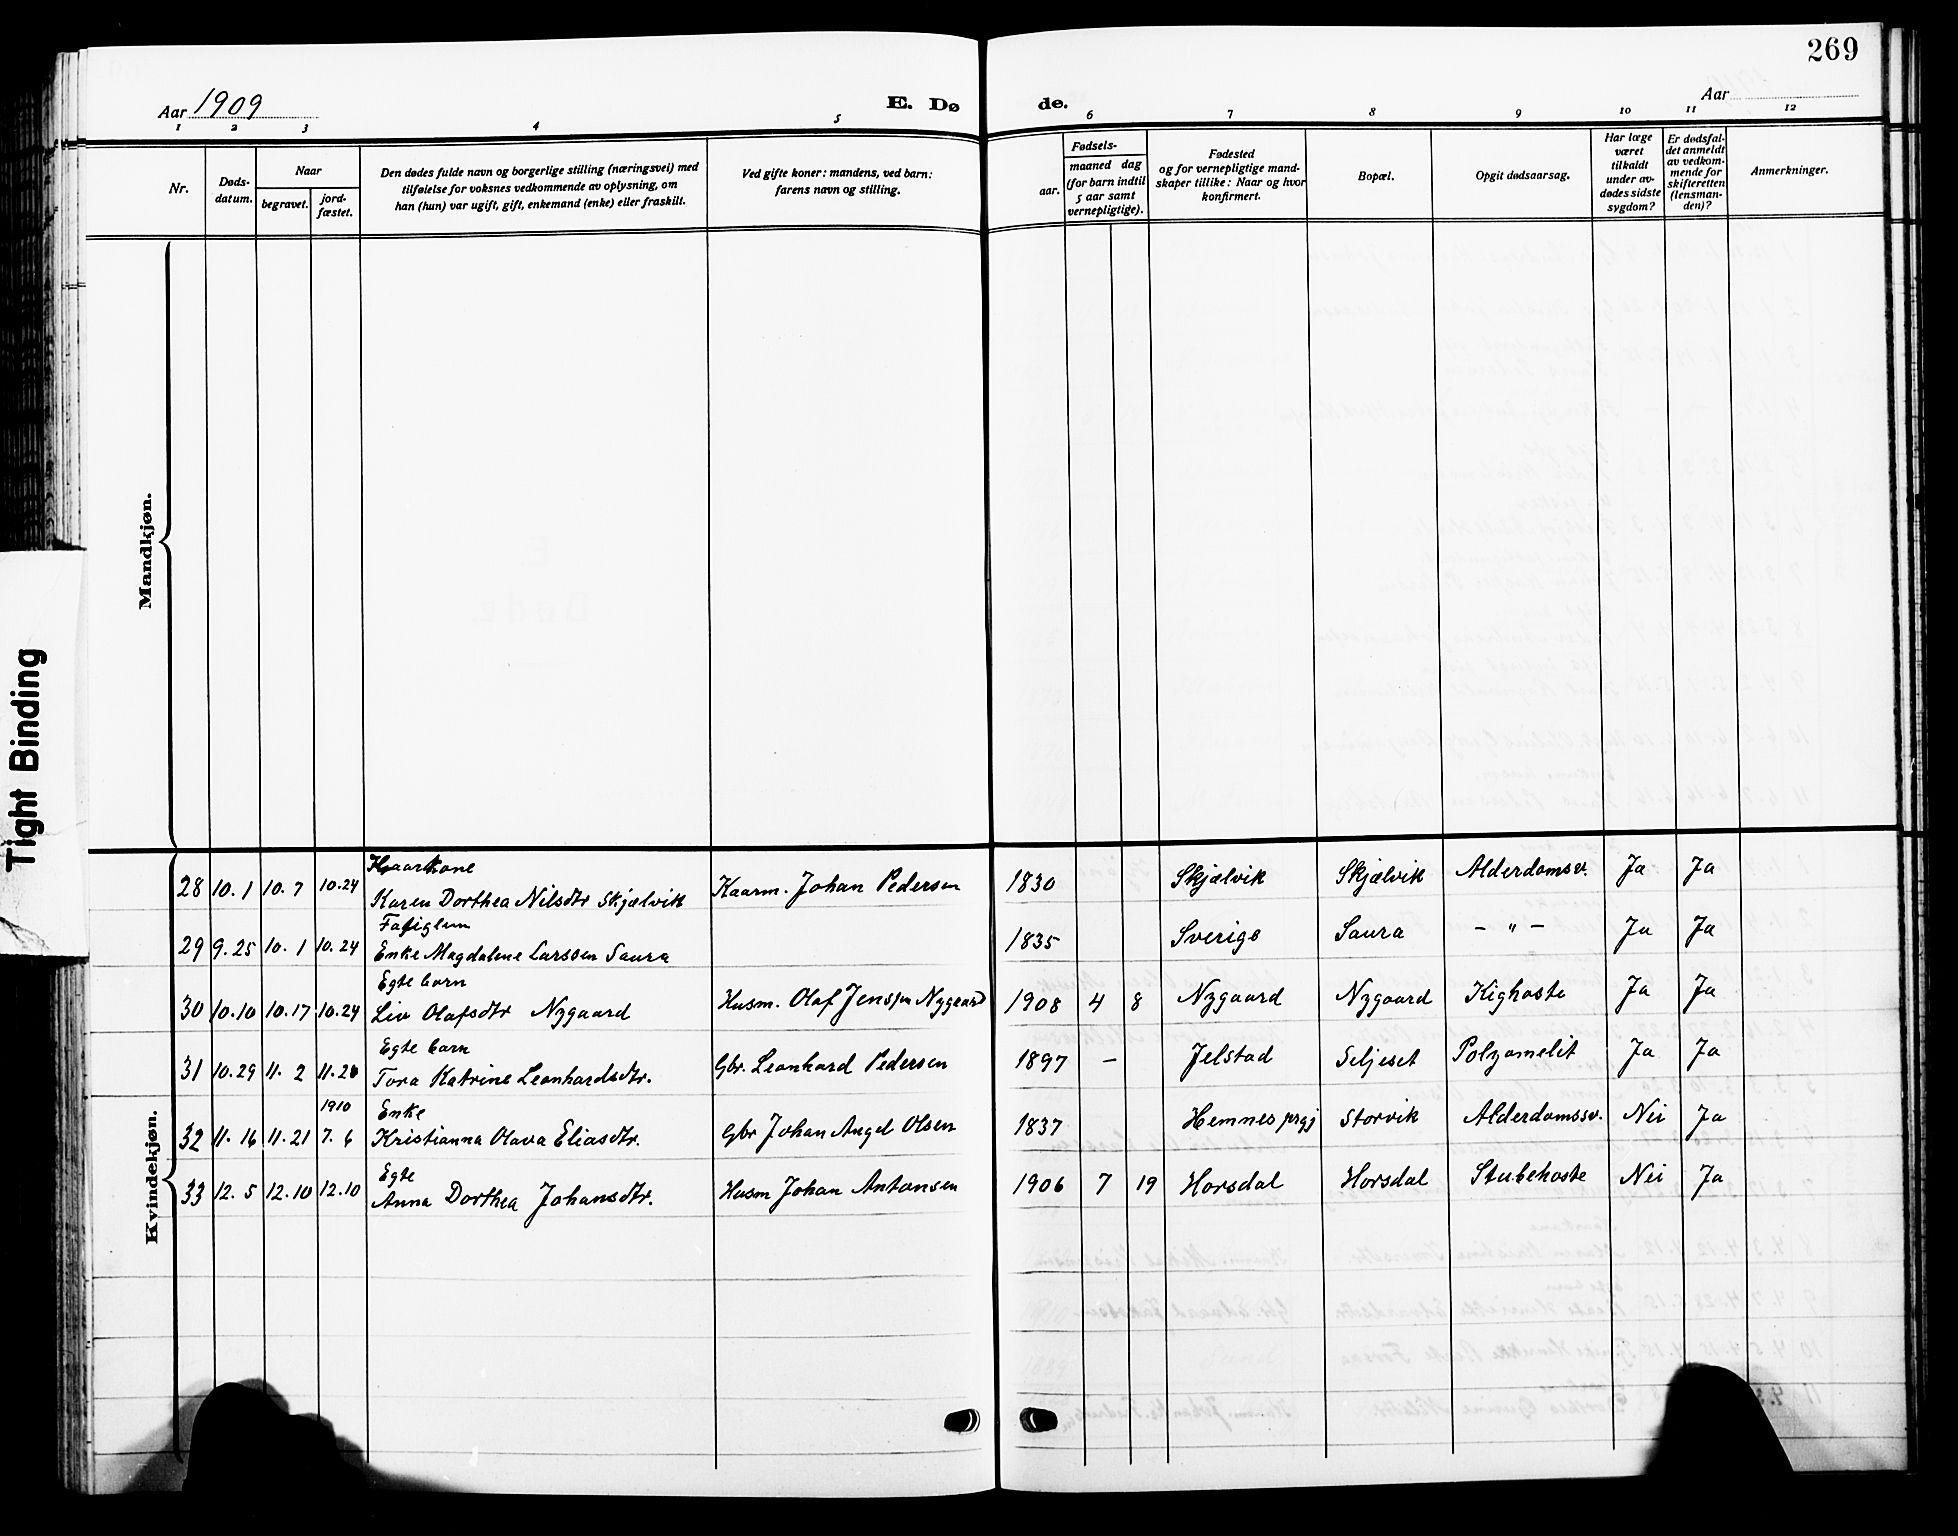 269
Aar 1909
E. Dø
de.
Aar
1 2 3 4 5 6 7 8 9 10 11 12
Nr.
Døds-
datum.
Naar
begravet.
jord-
fæstet.
Den dødes fulde navn og borgerlige stilling (næringsvei) med
tilføielse for voksnes vedkommende av oplysning, om
han (hun) var ugift, gift, enkemand (enke) eller fraskilt.
Ved gifte koner: mandens, ved barn:
farens navn og stilling.
Fødsels-
aar.
maaned dag
(for barn indtil
5 aar samt
vernepligtige).
Fødested
og for vernepligtige mand-
skaper tillike: Naar og hvor
konfirmert.
Bopæl.
Opgit dødsaarsag.
Har læge
været
tilkaldt
under av-
dødes sidste
sygdom?
Er dødsfal-
det anmeldt
av vedkom-
mende for
skifteretten
(lensman-
den)?
Anmerkninger.
Mandkjøn.
Tight Binding
Kvindekjøn.
Kaarkone
28 10.1 10.7 10.24 Karen Dorthea Nilsdtr Skjælvik Kaarm. Johan Pedersen 1830 Skjælvik Skjælvik Alderdomsv. Ja Ja
29 9.25 10.1 10.24 Enke Magdalene Larssen Saura 1835 Sverige Saura - " - Ja Ja
Egte barn
30 10.10 10.17 10.24 Liv Olafsdtr Nygaard Husm. Olaf Jenssen Nygaard 1908 4 8 Nygaard Nygaard Kighoste Ja Ja
Egte barn
31 10.29 11.2 11.28 Tora Katrine Leonhardsdtr. Gbr. Leonhard Pedersen 1897 - Jelstad Seljeset Polyomelit Ja Ja
1910 Enke
32 11.16 11.21 7.6 Kristianna Olava Eliasdtr. Gbr Johan Angel Olsen 1837 Hemnes prgj Storvik Alderdomssv. Nei Ja
Egte
33 12.5 12.10 12.10 Anna Dorthea Johansdtr. Husm Johan Antonsen 1906 7 19 Horsdal Horsdal Strubehoste Nei Ja